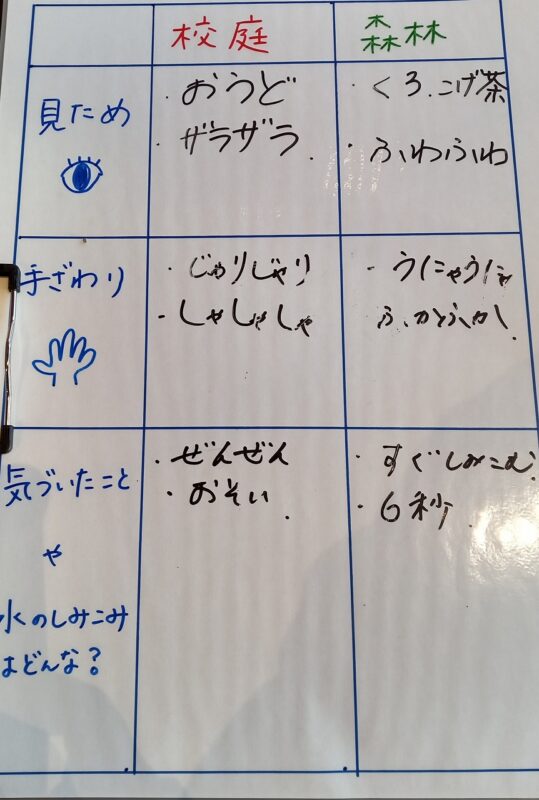 校庭
森林
見ため
・おうど
・ザラザラ
・くろ、こげ茶
・ふわふわ
手ざわり
・じゃりじゃり
・しゃしゃしゃ
・うにゃうにゃ
ふかふか
気づいたこと
や
水のしみこみ
はどんな?
・ぜんぜん
・おそい
・すぐしみこむ
・6秒